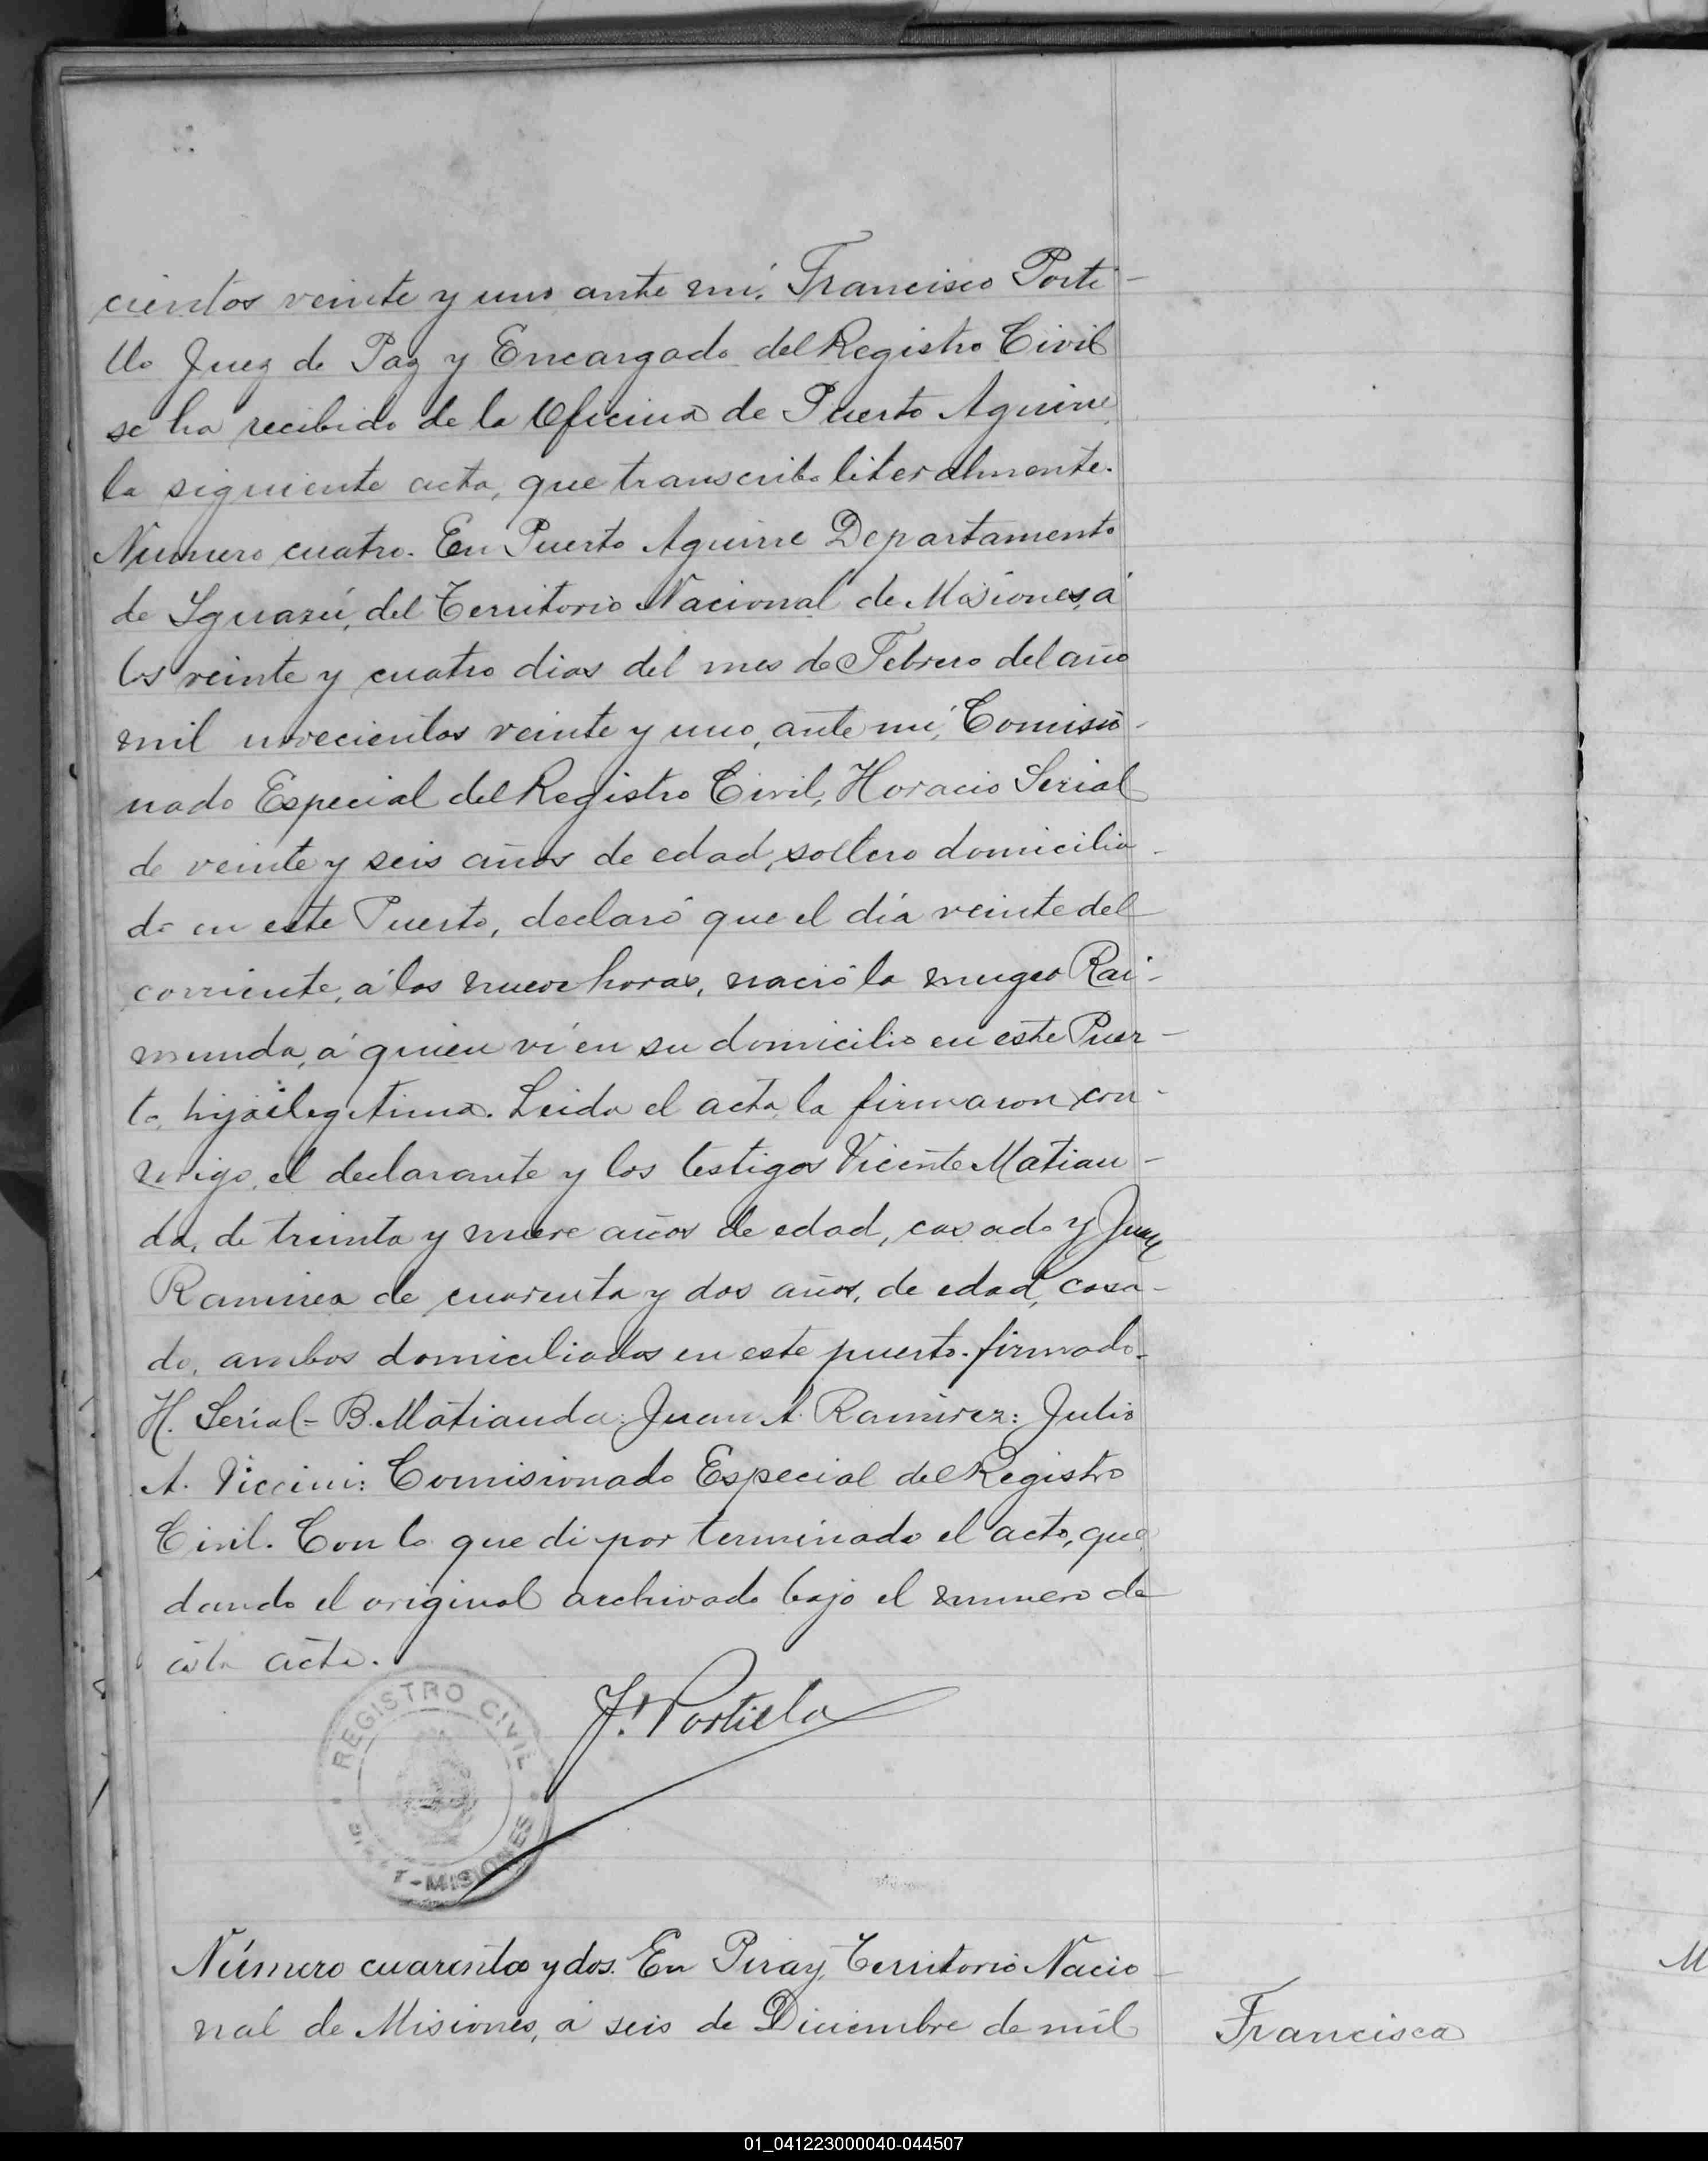 cientos veinte y uno ante mí, Francisco Porti-
llo Juez de Paz y Encargado del Registro Civil
se ha recibido de la Oficina de Puerto Aguirre
la siguiente acta, que transcribo literalmente.
Numero cuatro. En Puerto Aguirre Departamento
de Iguazú, del Territorio Nacional de Misiones, á
los veinte y cuatro dias del mes de Febrero del año
mil novecientos veinte y uno, ante mí, Comisio-
nado Especial del Registro Civil, Horacio Serial
de veinte y seis años de edad, soltero domicilia-
do en este Puerto, declaró que el día veinte del
corriente, á las nueve horas, nació la muger Rai-
munda, á quien ví en su domicilio en este Puer-
to, hija ilegitima. Leida el acta, la firmaron con-
migo, el declarante y los testigos Vicente Matiau-
da, de treinta y nueve años de edad, casado y Juan
Ramirez de cuarenta y dos años, de edad, casa-
do, ambos domiciliados en este puerto. firmado.
H. Serial = B. Matiauda: Juan A. Ramirez: Julio
A. Viccini: Comisionado Especial del Registro
Civil. Con lo que di por terminado el acto, que
dando el original archivado bajo el numero de
ésta acta.
F. Portillo
REGISTRO CIVIL
MISIONES
Número cuarenta y dos. En Piray, Territorio Nacio-
nal de Misiones, á seis de Diciembre de mil
Francisca
M
01_041223000040-044507